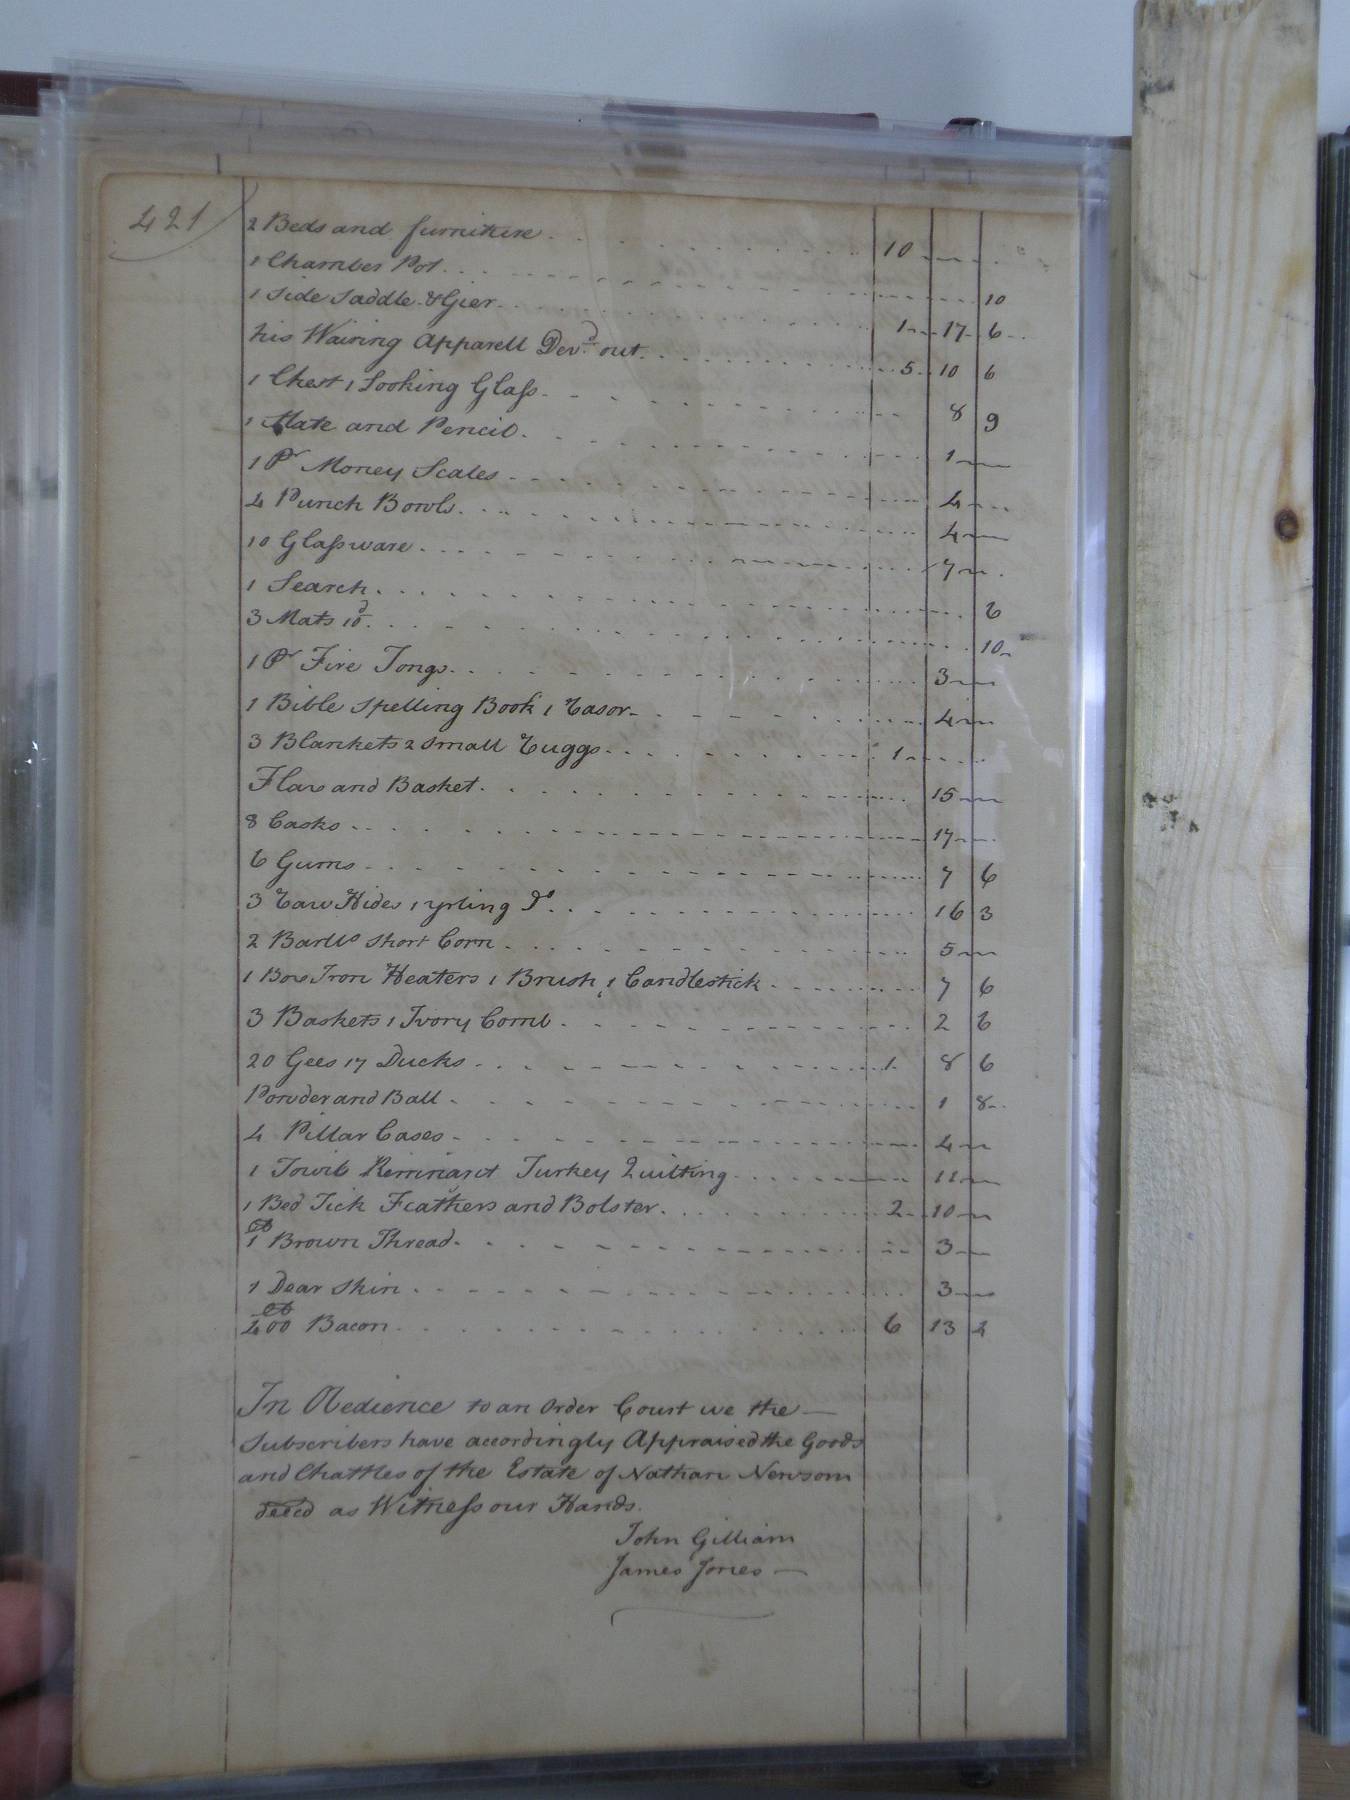 421
2 Beds and furniture 10
1 Chamber Pot 10
1 Side Saddle & Gier 1 17 6
his Wairing Apparell Dev.d out 5 10 6
1 Chest 1 Looking Glass 8 9
1 Slate and Pencil 1
1 Pr Money Scales 4
4 Punch Bowls 4
10 Glassware 7
1 Search 6
3 Mats 10d 10
1 Pr Fire Tongs 3
1 Bible Spelling Book 1 Rasor 4
3 Blankets 2 Small Ruggs 1
Flax and Basket 15
8 Casks 17
6 Gums 7 6
3 Raw Hides 1 yrling Do 16 3
2 Barlls Short Corn 5
1 Box Iron Heaters 1 Brush 1 Candlestick 7 6
3 Baskets 1 Ivory Comb 2 6
20 Gees 17 Ducks 1 8 6
Powder and Ball 1 8
4 Pillar Cases 4
1 Towil Remnant Turkey Quilting 11
1 Bed Tick Feathers and Bolster 2 10
1 lb Brown Thread 3
1 Dear Skin 3
400 lb Bacon 6 13 2
In Obedience to an Order Court we the
Subscribers have accordingly Appraised the Goods
and Chattles of the Estate of Nathan Newsom
deced as Witness our Hands.
John Gilliam
James Jones